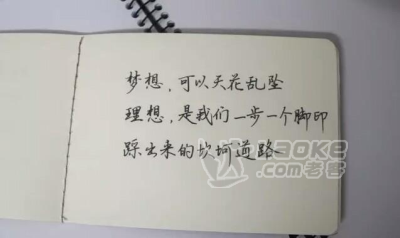 梦想，可以天花乱坠
理想，是我们一步一个脚印
踩出来的坎坷道路
laoke
.com老客